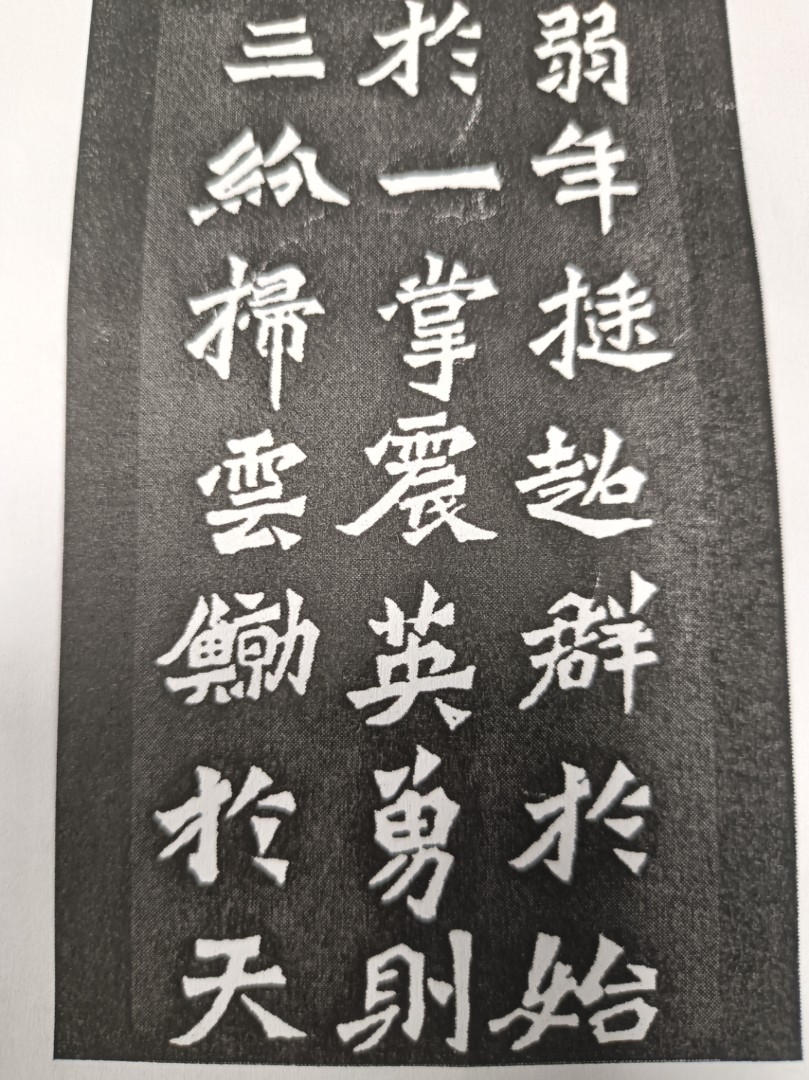 弱年挺超群於始
於一掌震英勇則
三紛掃雲鯨於天